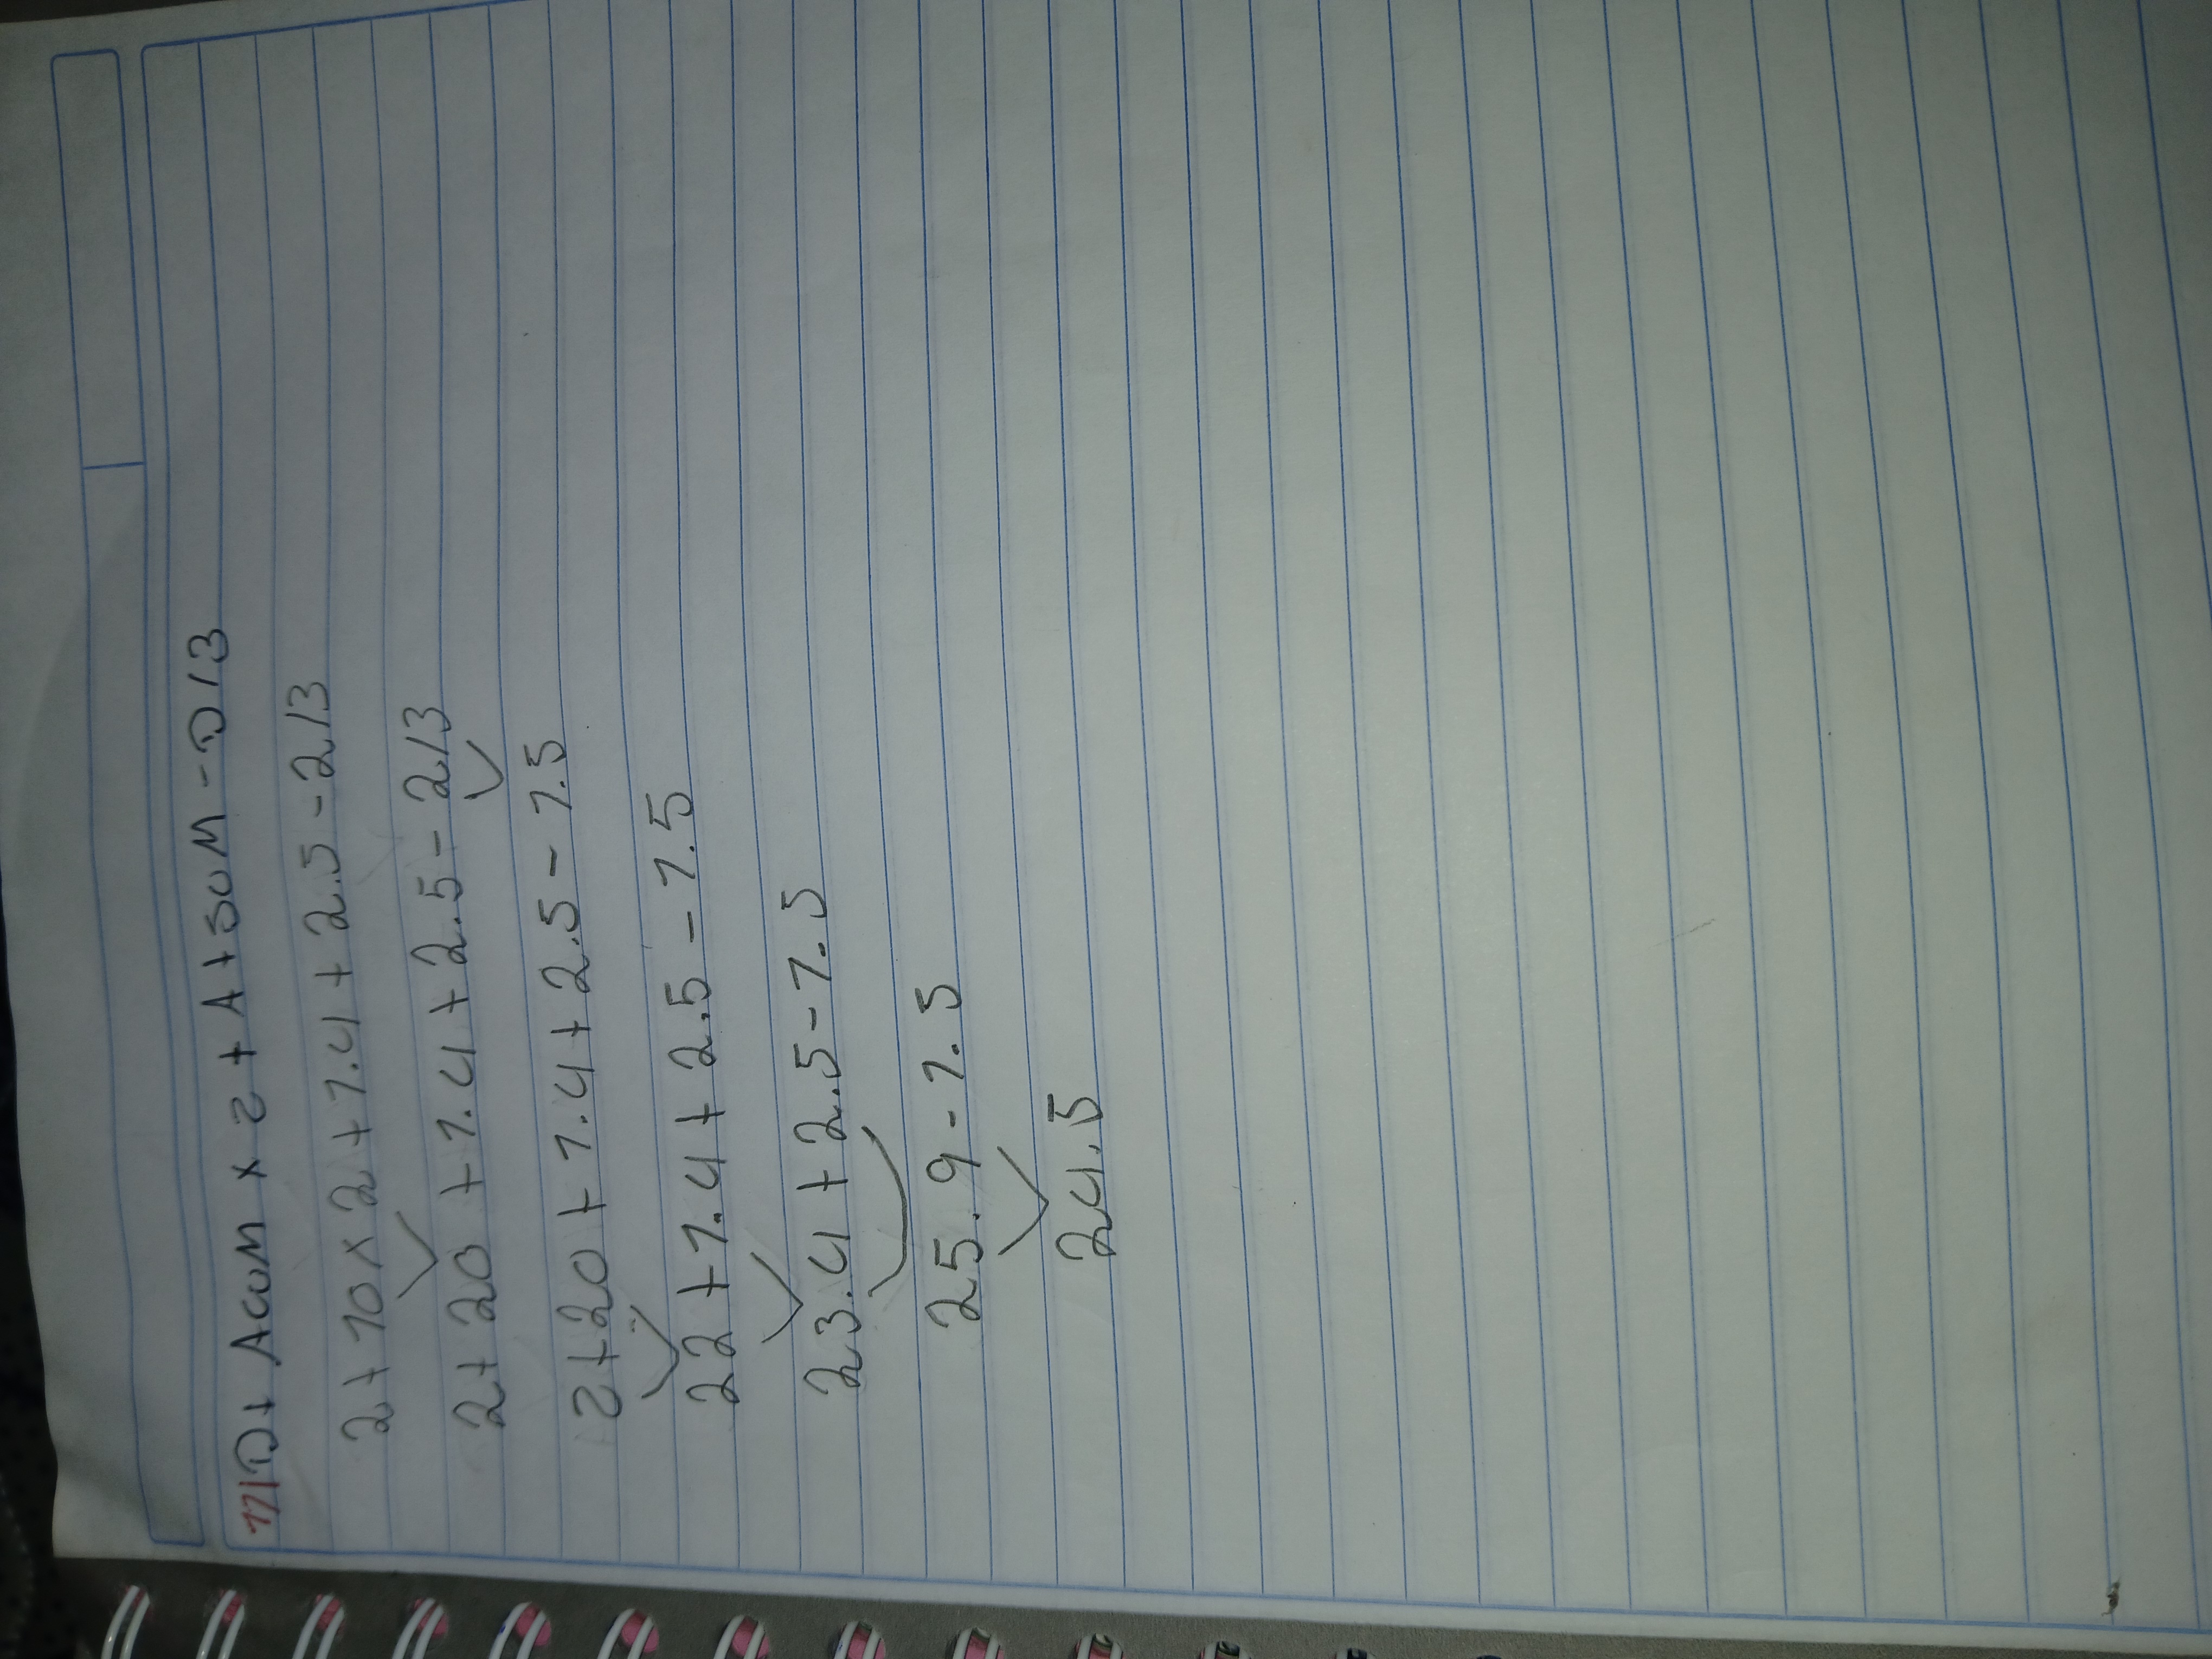 11) D + ACUM x 2 + A + SUM - D / 3
2 + 10 x 2 + 1.4 + 2.5 - 2 / 3
2 + 20 + 1.4 + 2.5 - 2 / 3
2 + 20 + 1.4 + 2.5 - 1.5
22 + 1.4 + 2.5 - 1.5
23.4 + 2.5 - 1.5
25.9 - 1.5
24.5